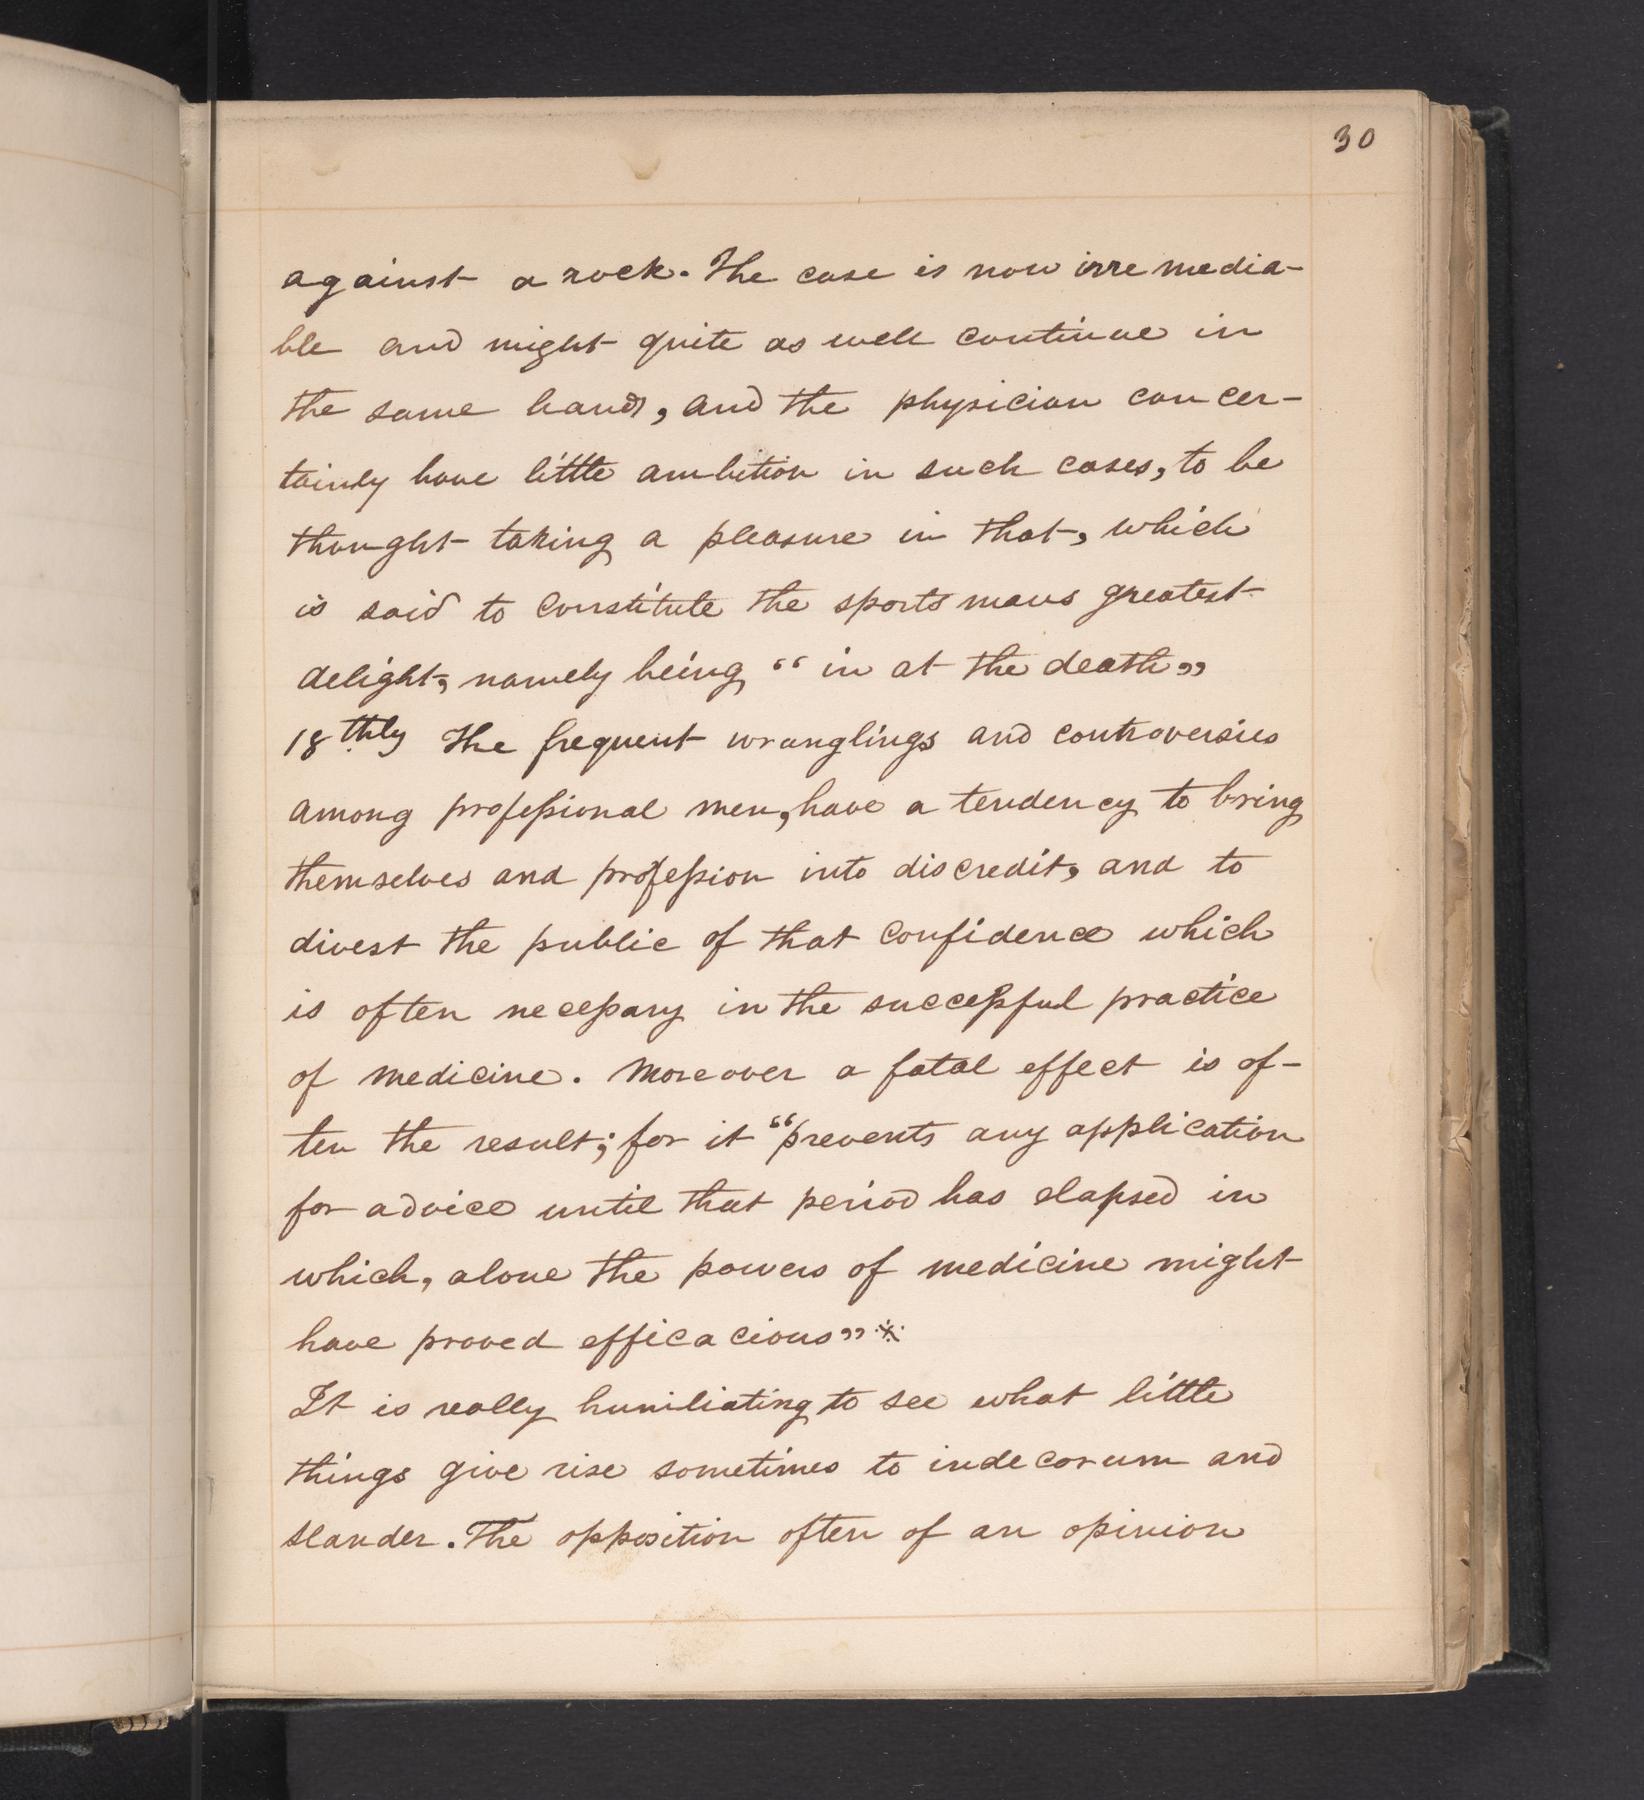 30
against a rock. The case is now irremedia-
ble and might quite as well continue in
the same hands, and the physician can cer-
tainly have little ambition in such cases, to be
thought taking a pleasure in that, which
is said to constitute the sportsmans greatest
delight, namely being “in at the death”
18thly The frequent wranglings and controversies
among professional men, have a tendency to bring
themselves and profession into discredit, and to
divest the public of that confidence which
is often necessary in the successful practice
of medicine. Moreover a fatal effect is of-
ten the result; for it “prevents any application
for advice until that period has elapsed in
which, alone the powers of medicine might
have proved efficacious” ※
It is really humiliating to see what little
things give rise sometimes to indecorum and
slander. The opposition often of an opinion